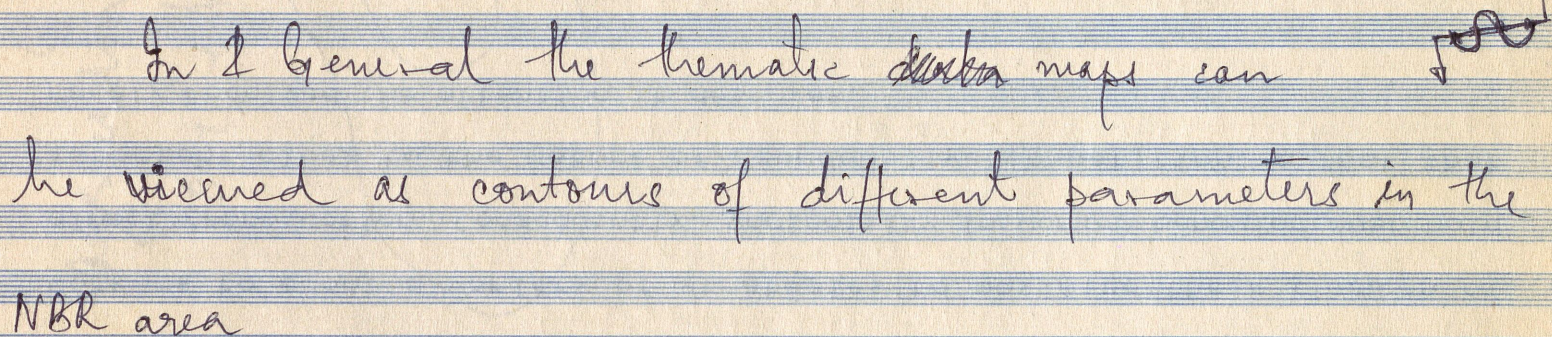 In General the thematic maps can
be viewed as contours of different parameters in the
NBR area